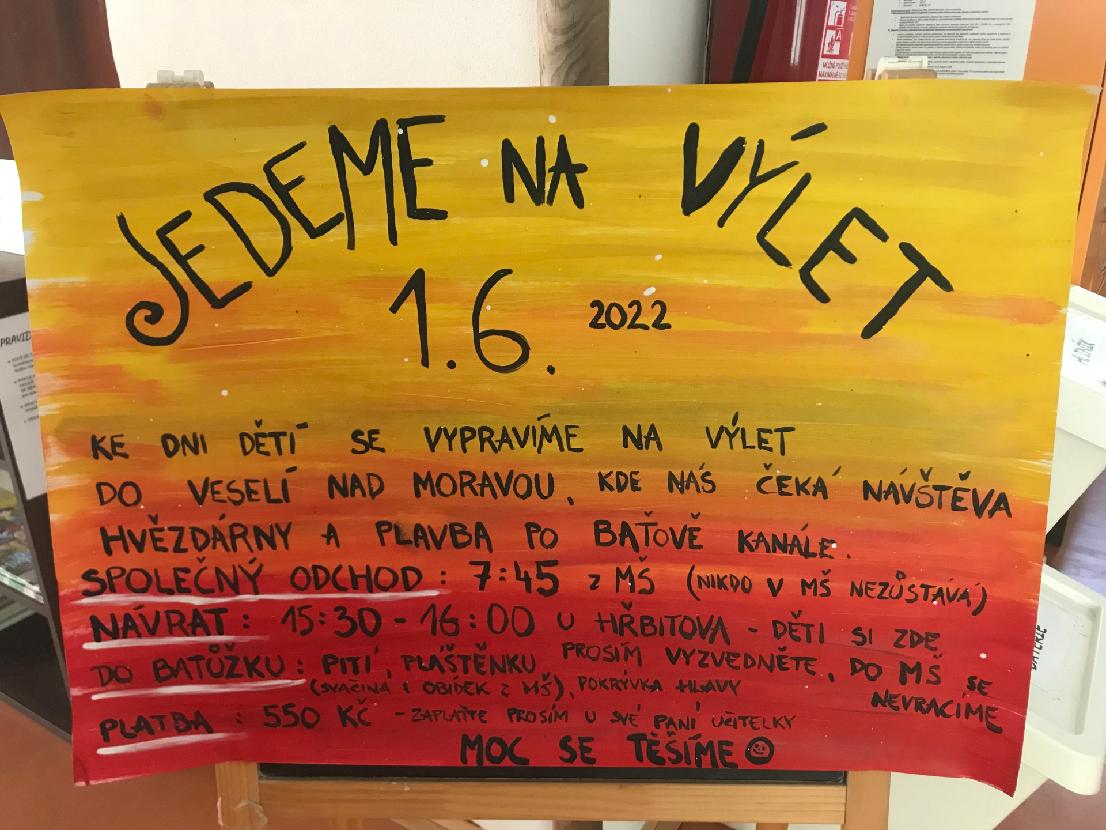 JEDEME NA VÝLET
1.6. 2022
KE DNI DĚTÍ SE VYPRAVÍME NA VÝLET
DO VESELÍ NAD MORAVOU, KDE NÁS ČEKÁ NÁVŠTĚVA
HVĚZDÁRNY A PLAVBA PO BAŤOVĚ KANÁLE.
SPOLEČNÝ ODCHOD: 7:45 z MŠ (NIKDO V MŠ NEZŮSTÁVÁ)
NÁVRAT: 15:30 - 16:00 U HŘBITOVA - DĚTI SI ZDE
PROSÍM VYZVEDNĚTE, DO MŠ SE
NEVRACÍME
DO BATŮŽKU: PITÍ, PLÁŠTĚNKU
(SVAČINA I OBÍDEK Z MŠ), POKRÝVKA HLAVY
PLATBA: 550 KČ - ZAPLAŤTE PROSÍM U SVÉ PANÍ UČITELKY
MOC SE TĚŠÍME